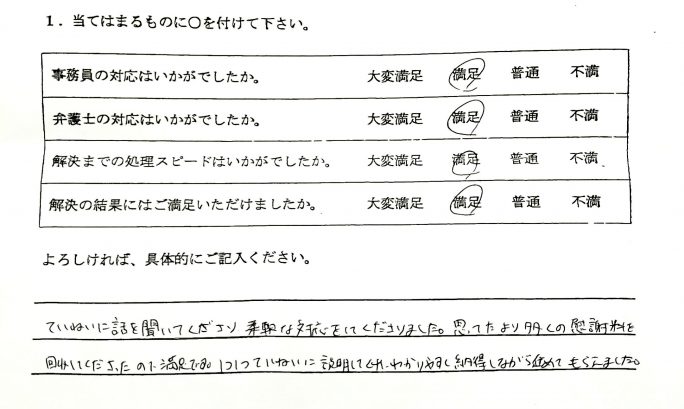 1．当てはまるものに○を付けて下さい。
事務員の対応はいかがでしたか。 大変満足 満足 普通 不満
弁護士の対応はいかがでしたか。 大変満足 満足 普通 不満
解決までの処理スピードはいかがでしたか。 大変満足 満足 普通 不満
解決の結果にはご満足いただけましたか。 大変満足 満足 普通 不満
よろしければ、具体的にご記入ください。
ていねいに話を聞いてくださり 柔軟な対応をしてくださりました。思ってたより多くの慰謝料を
回収してくださったので満足です。1つ1つていねいに説明して わかりやすく納得しながら進めてもらえました。